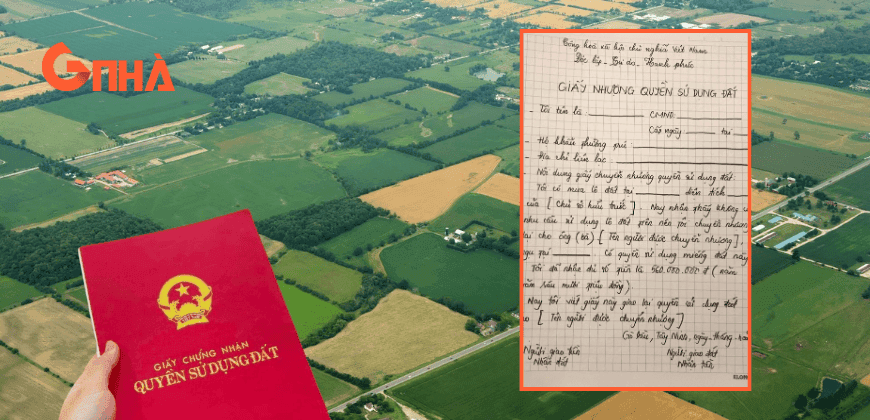 GNHÀ
Cộng hoà xã hội chủ nghĩa Việt Nam
Độc lập - Tự do - Hạnh phúc
GIẤY NHƯỢNG QUYỀN SỬ DỤNG ĐẤT
- Tôi tên là : CMND:
Cấp ngày tại
- Hộ khẩu thường trú :
- Địa chỉ liên lạc :
Nội dung giấy chuyển nhượng quyền sử dụng đất.
Tôi có mua lô đất tại diện tích
của [ Chủ sở hữu trước ]. Nay nhận thấy không
nhu cầu sử dụng lô đất trên nên tôi chuyển nhượng
lại cho ông (bà) [ Tên người được chuyển nhượng ],
Có quyền sử dụng miếng đất này
Tôi đã nhận đủ số tiền là 560.000.000 đ (năm
trăm sáu mươi triệu đồng).
Nay tôi viết giấy này giao lại quyền sử dụng đất
[ Tên người được chuyển nhượng ]
Gò Dầu, Tây Ninh, ngày-tháng-năm
Người giao tiền Người giao đất
Nhận đất Nhận tiền
GIẤY CHỨNG NHẬN
QUYỀN SỬ DỤNG ĐẤT